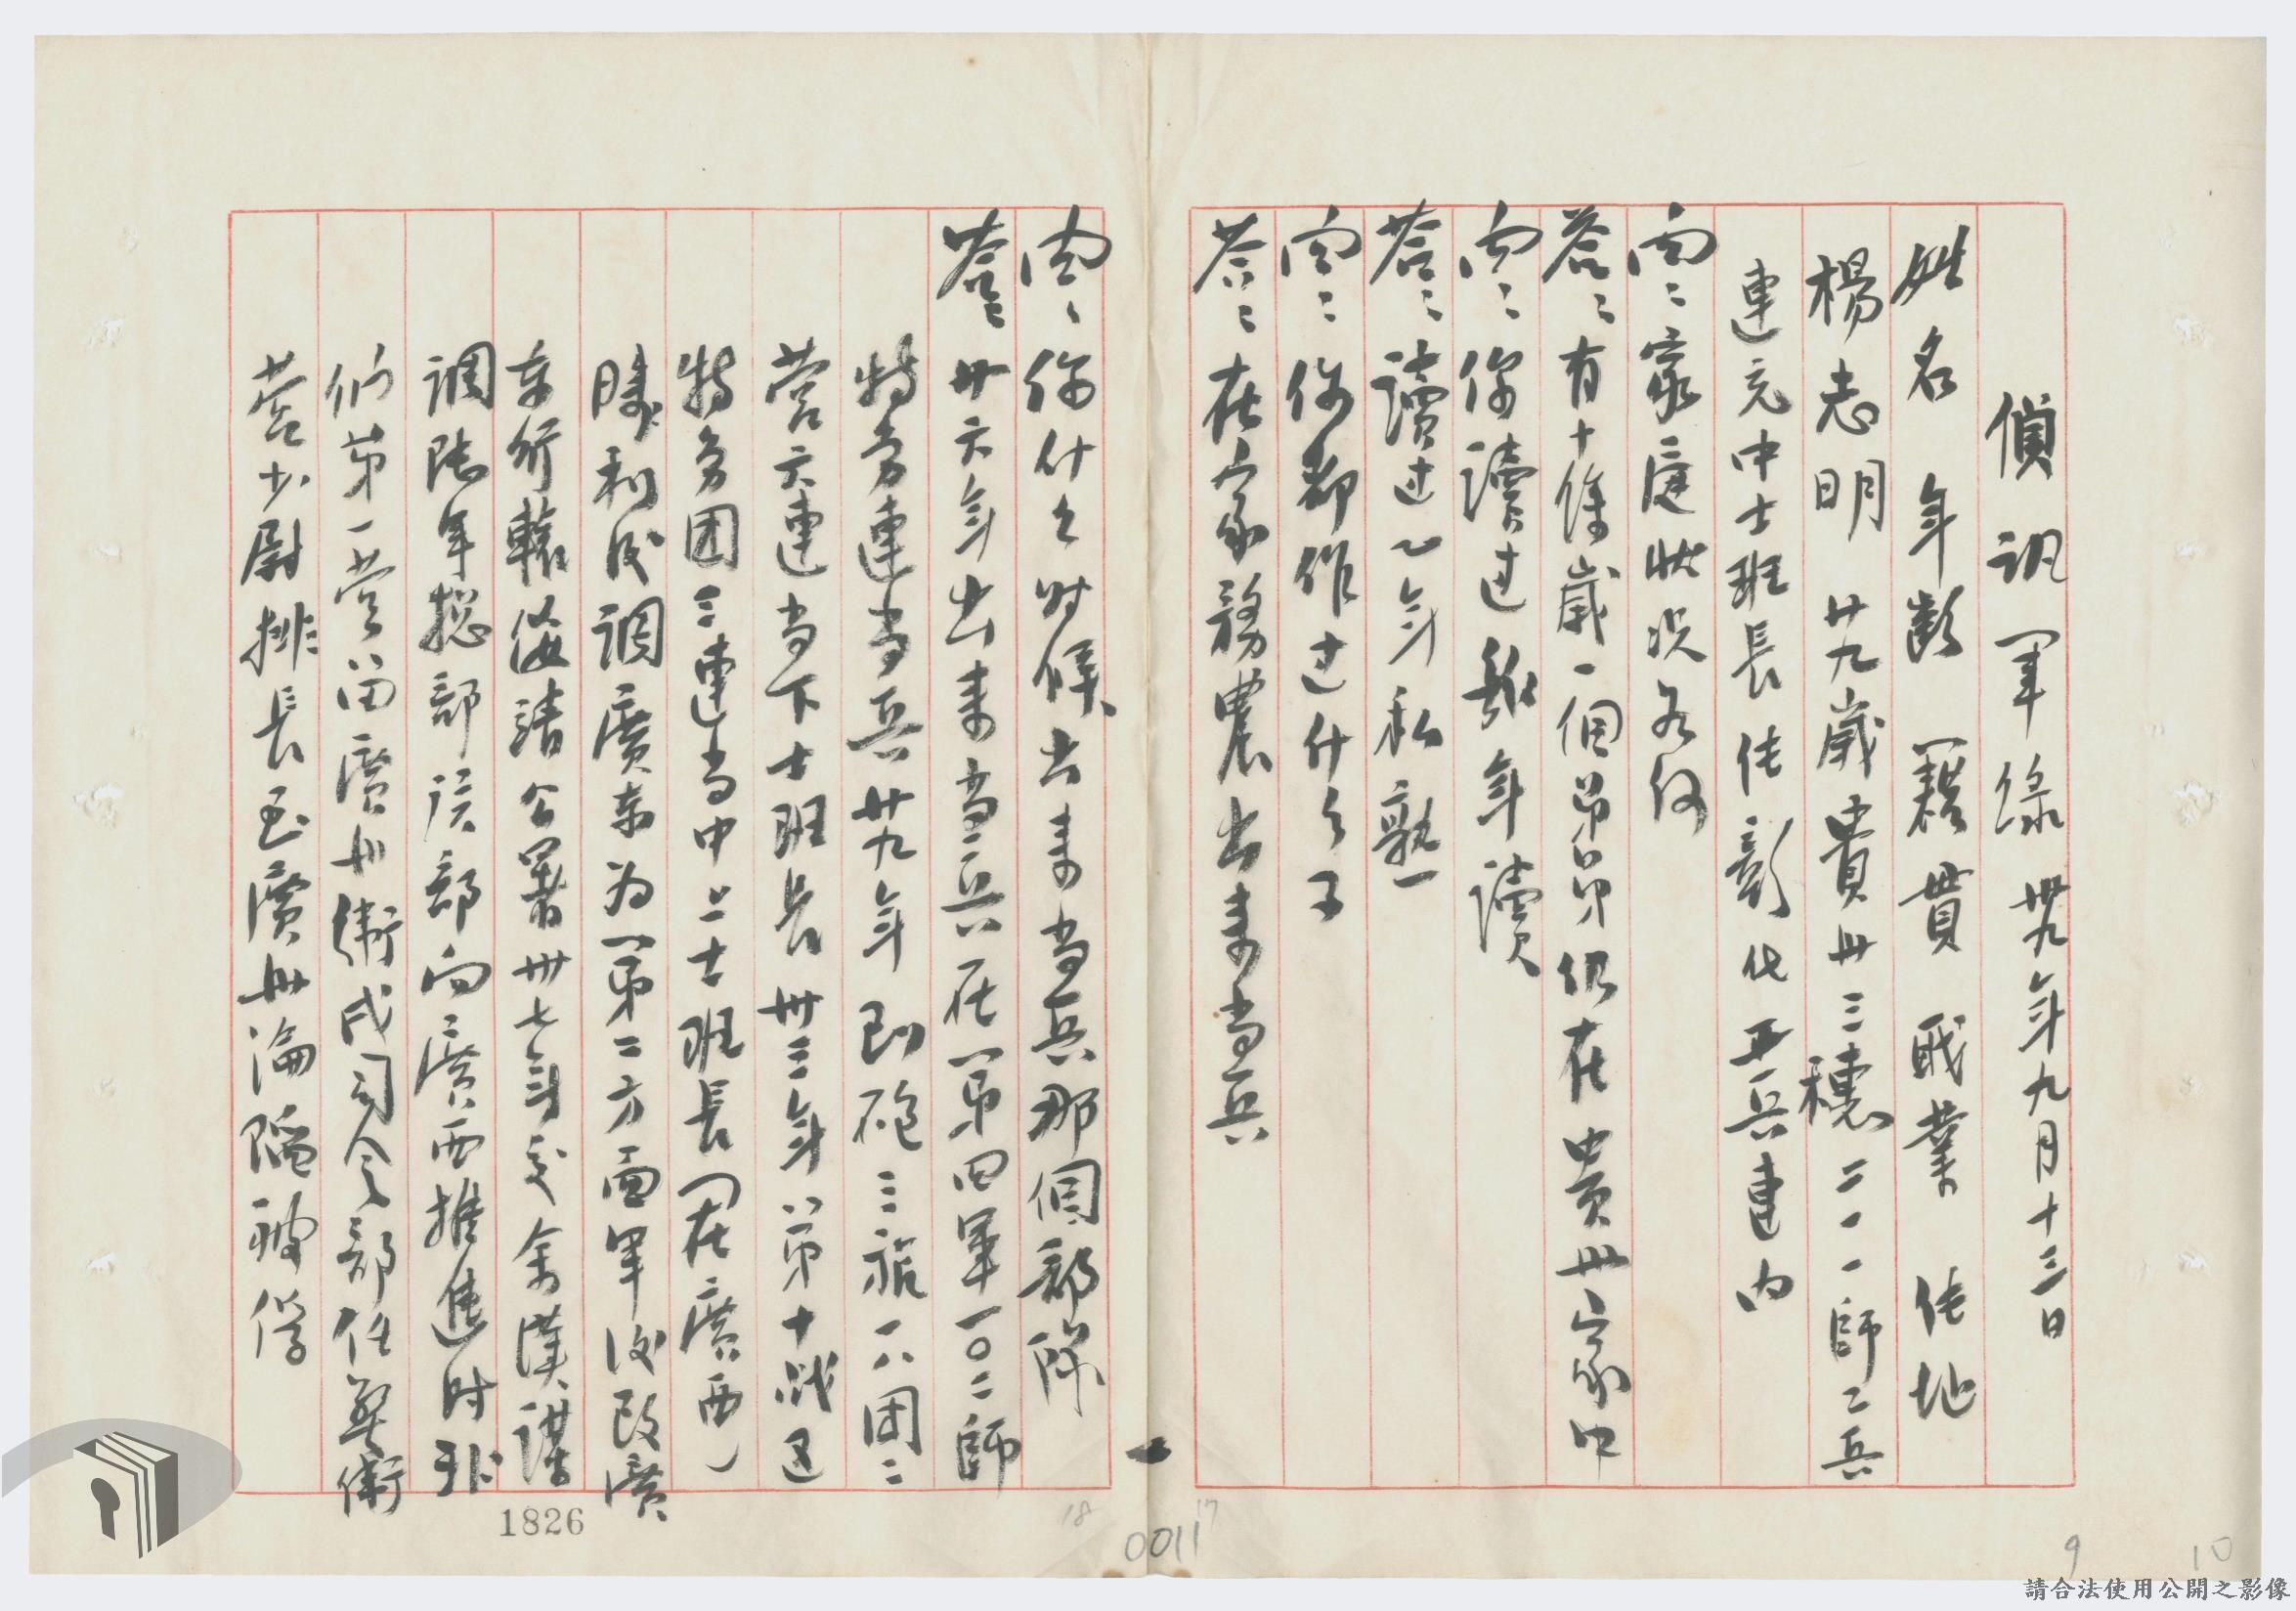 偵訊筆錄 卅九年九月十三日
姓名 年齡 籍貫 職業 住址
楊志明 廿九歲 貴州三穗 二一一師工兵
連充中士班長住彰化工兵連內
問：家庭狀況為何
答：有十餘歲一個弟弟仍在貴州家中
問：你讀过幾年讀
答：讀过乙年私塾
問：你都作过什么子
答：在家務農出来当兵
問：你什么时候出来当兵那個部隊
答：廿六年出来当兵在第四軍一〇二師
特务連当兵廿九年到砲三旅一八团二
营六連当下士班長卅三年第十战区
特务团三連当中上士班長（在廣西）
勝利後調廣東为第二方面軍後改廣
東行轅後請公署卅七年交余漢謀
調陸軍總部该部向廣西推進时
们第一营留廣州衛戍司令部任警衛
营少尉排長至廣州淪陷被俘
1826
0011
17
18
9
10
請合法使用公開之影像